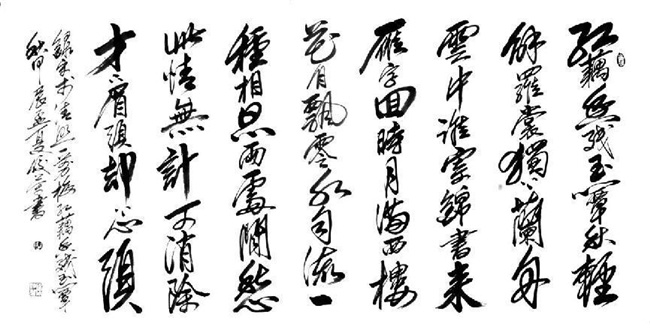 紅藕香殘玉簟秋輕
解羅裳獨上蘭舟
雲中誰寄錦書来
雁字回時月滿西樓
花自飄零水自流一
種相思兩處閒愁
此情無計可消除
才下眉頭却上心頭
錄宋李清照一剪梅紅藕香殘玉簟
秋甲辰孟夏書